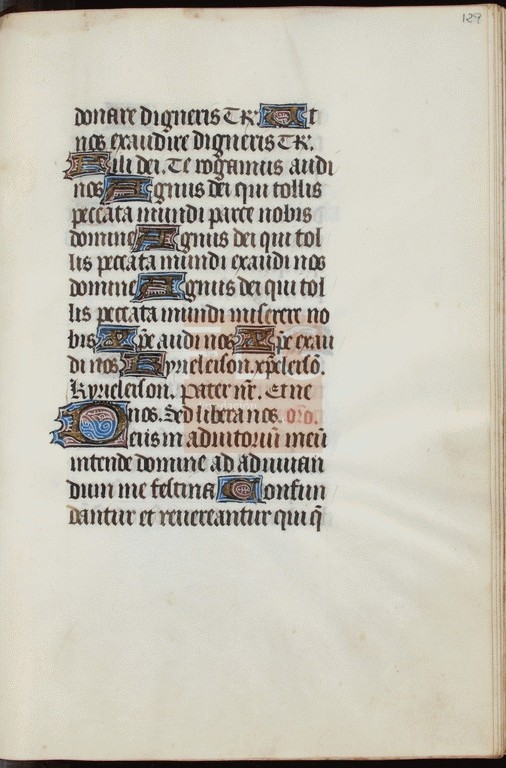 129
donare digneris TR. Ut
nos exaudire digneris TR.
Fili dei. Te rogamus audi
nos Agnus dei qui tollis
peccata mundi parce nobis
domine Agnus dei qui tol
lis peccata mundi exaudi nos
domine Agnus dei qui tol
lis peccata mundi miserere no
bis xp̄e audi nos xp̄e exau
di nos Kyrieleison. xp̄eleisō.
Kyrieleison. Pater nr̄. Et ne
nos. Sed libera nos. Orō.
Deus in adiutoriū meū
intende domine ad adiuuan
dum me festina Confun
dantur et reuereantur qui q̄